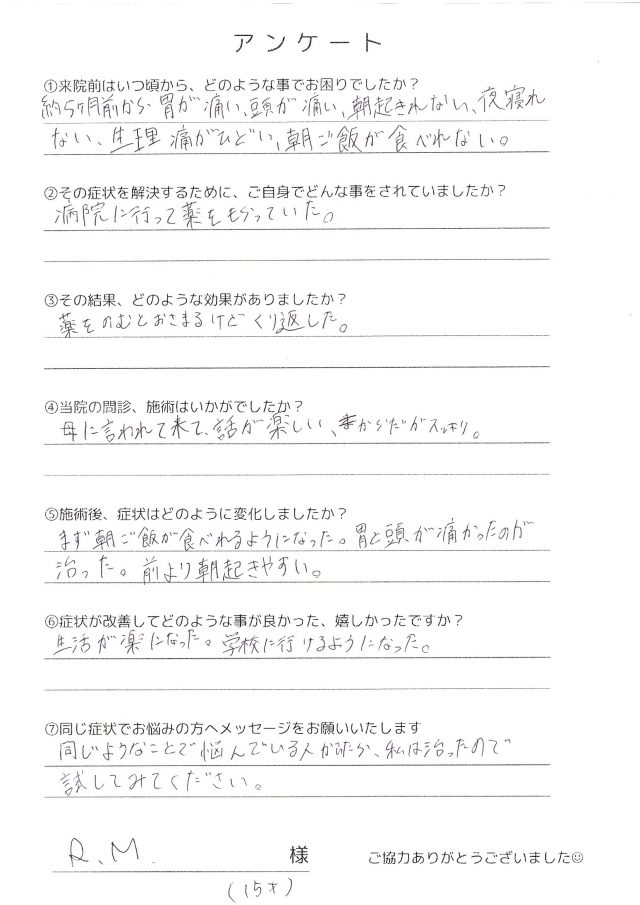 アンケート
①来院前はいつ頃から、どのような事でお困りでしたか？
約5ヶ月前から胃が痛い、頭が痛い、朝起きれない、夜寝れ
ない、生理痛がひどい、朝ご飯が食べれない。
②その症状を解決するために、ご自身でどんな事をされていましたか？
病院に行って薬をもらっていた。
③その結果、どのような効果がありましたか？
薬をのむとおさまるけどくり返した。
④当院の問診、施術はいかがでしたか？
母に言われて来て、話が楽しい、からだがスッキリ。
⑤施術後、症状はどのように変化しましたか？
まず朝ご飯が食べれるようになった。胃と頭が痛かったのが
治った。前より朝起きやすい。
⑥症状が改善してどのような事が良かった、嬉しかったですか？
生活が楽になった。学校に行けるようになった。
⑦同じ症状でお悩みの方へメッセージをお願いいたします
同じようなことで悩んでいる人がいたら、私は治ったので
試してみてください。
R.M. 様 ご協力ありがとうございました☺
(15才)